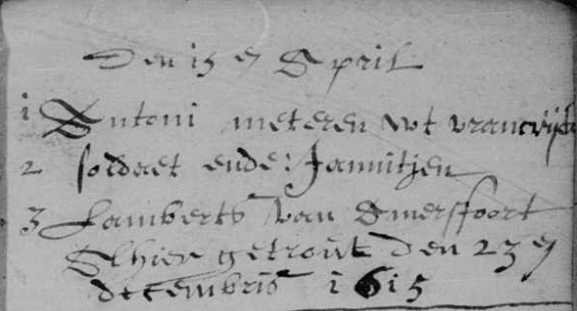 Den 15 en April
1 Antoni meteren wt vrancrijck
2 soldaet ende: Jannitjen
3 Lamberts van Amersfoort
Alhier getrout den 23 en
decembris 1615